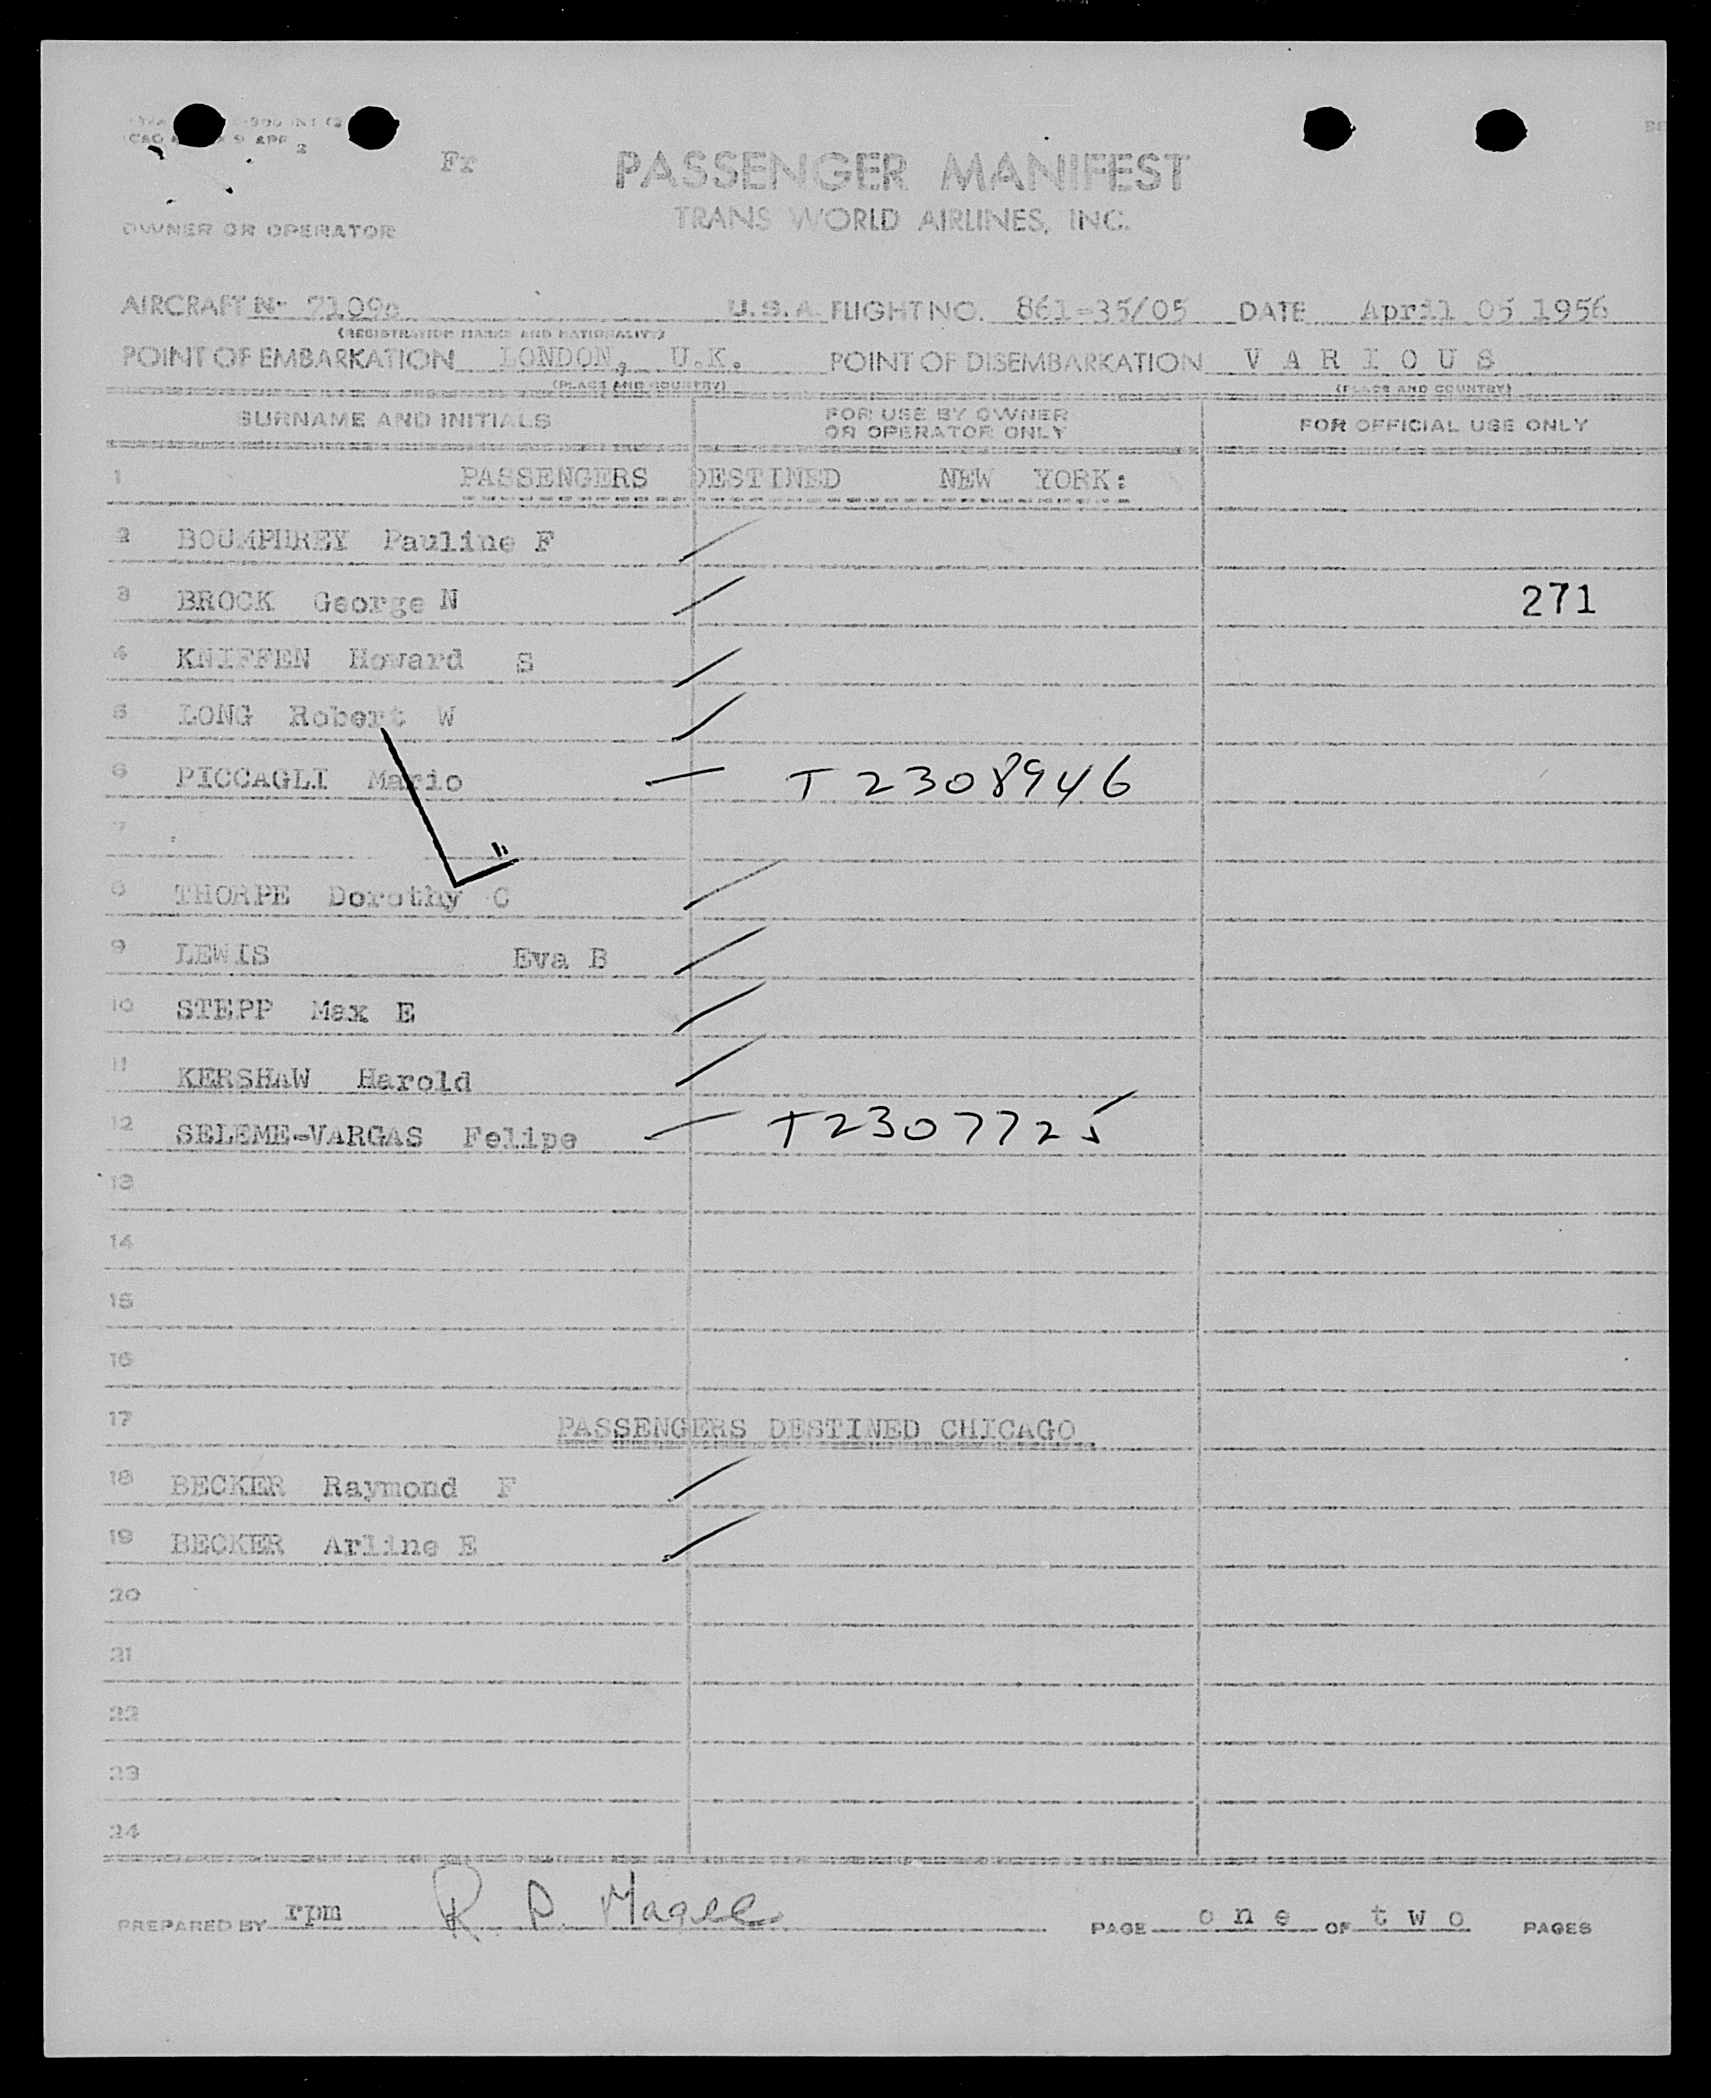 Fr
PASSENGER MANIFEST
TRANS WORLD AIRLINES, INC.
OWNER OR OPERATOR
AIRCRAFT Nr 7109c U.S.A. FLIGHT NO. 861-35/05 DATE April 05 1956
(REGISTRATION MARKS AND NATIONALITY)
POINT OF EMBARKATION LONDON, U.K. POINT OF DISEMBARKATION V A R I O U S
(PLACE AND COUNTRY) (PLACE AND COUNTRY)
SURNAME AND INITIALS FOR USE BY OWNER OR OPERATOR ONLY FOR OFFICIAL USE ONLY
1 PASSENGERS DESTINED NEW YORK:
2 BOUMPHREY Pauline F
3 BROCK George N 271
4 KNIFFEN Howard S
5 LONG Robert W
6 PICCAGLI Mario T2308946
7
8 THORPE Dorothy C
9 LEWIS Eva B
10 STEPP Max E
11 KERSHAW Harold
12 SELEME-VARGAS Felipe T2307725
13
14
15
16
17 PASSENGERS DESTINED CHICAGO
18 BECKER Raymond F
19 BECKER Arline E
20
21
22
23
24
PREPARED BY rpm R. P. Magee PAGE o n e OF t w o PAGES